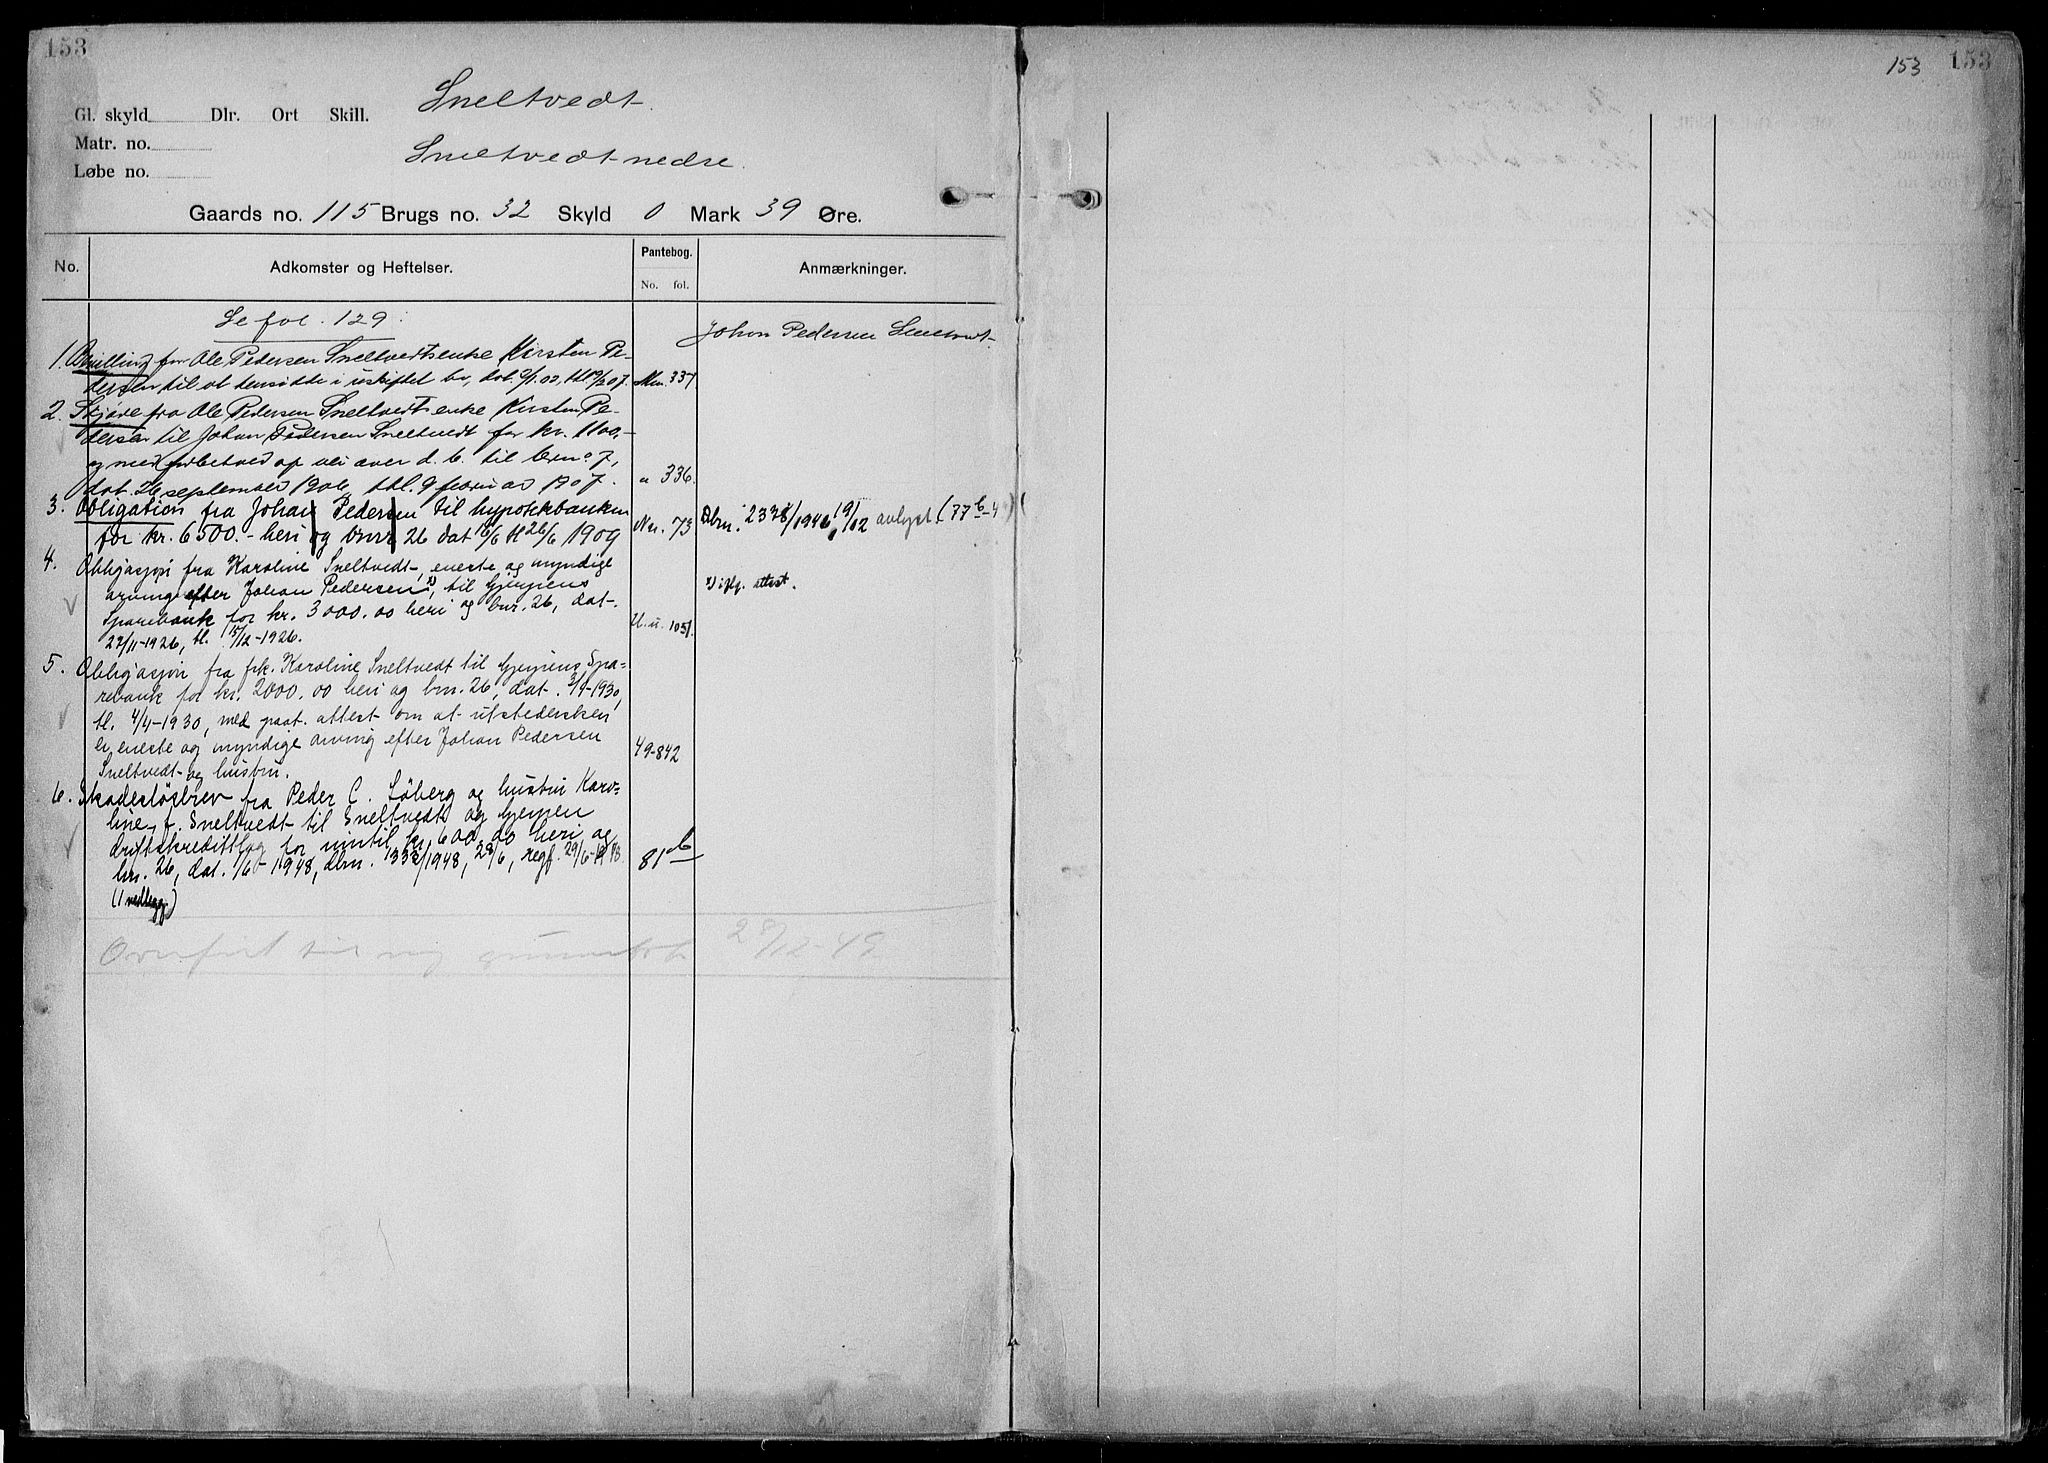 153
Sneltvedt
Gl. skyld Dlr. Ort Skill.
Matr. no.
Sneltvedt nedre.
Løbe no.
Gaards no. 115 Brugs no. 32 Skyld 0 Mark 39 Øre.
No. Adkomster og Heftelser. Pantebog. No. fol. Anmærkninger.
Se fol. 129.
Johan Pedersen Sneltvedt.
1. Bevilling for Ole Pedersen Sneltvedts enke Kirsten Pe-
dersen til at hensidde i uskiftet bo, dat. thl. 337
2. Skjøde fra Ole Pedersen Sneltvedts enke Kirsten Pe-
dersen til Johan Pedersen Sneltvedt for kr. 1100,-
og med forbehold op vei over d. b. til brno 7,
dat. 26 september 1906, thl. 9 februar 1907. " 336.
3. Obligation fra Johan Pedersen til hypothekbanken
for kr. 6500.- heri og bnr 26 dat 16/6 tl 26/6 1909 73 Dbnr. 2338/1946 19/12 avlyst (77b-4
4. Obligasjon fra Karoline Sneltvedt, eneste og myndige
arving efter Johan Pedersen x), til Gjerpens
x) iflg. attest.
Sparebank for kr. 3000.00 heri og bnr. 26, dat.
27/11-1926, tl. 15/12-1926. 1051.
5. Obligasjon fra frk. Karoline Sneltvedt til Gjerpens Spa=
rebank for kr. 2000.00 heri og bnr. 26, dat. 3/4-1930,
tl. 4/4-1930, med paat. attest om at utstedersken
er eneste og myndige arving efter Johan Pedersen
Sneltvedt og hustru. 49-842
6. Skadesløsbrev fra Peder C. Søberg og hustru Karo=
line f. Sneltvedt til Sneltvedt og Gjerpen
driftskredittlag for inntil kr. 600,00 heri og
bnr. 26, dat. 1/6-1948, dbnr. 1338/1948, 28/6, regf. 29/6-1948. 81b
(1 vedlegg)
Overført til ny grunnbok 28/12-49
153 153